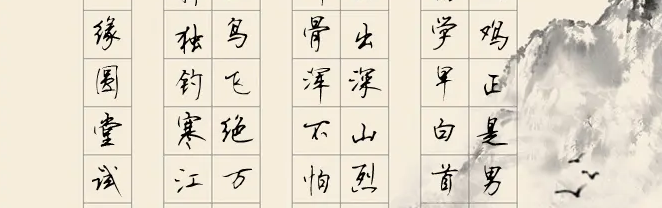 鸡正是男
学早白首
出深山烈
骨浑不怕
鸟飞绝万
独钓寒江
缘圆堂试